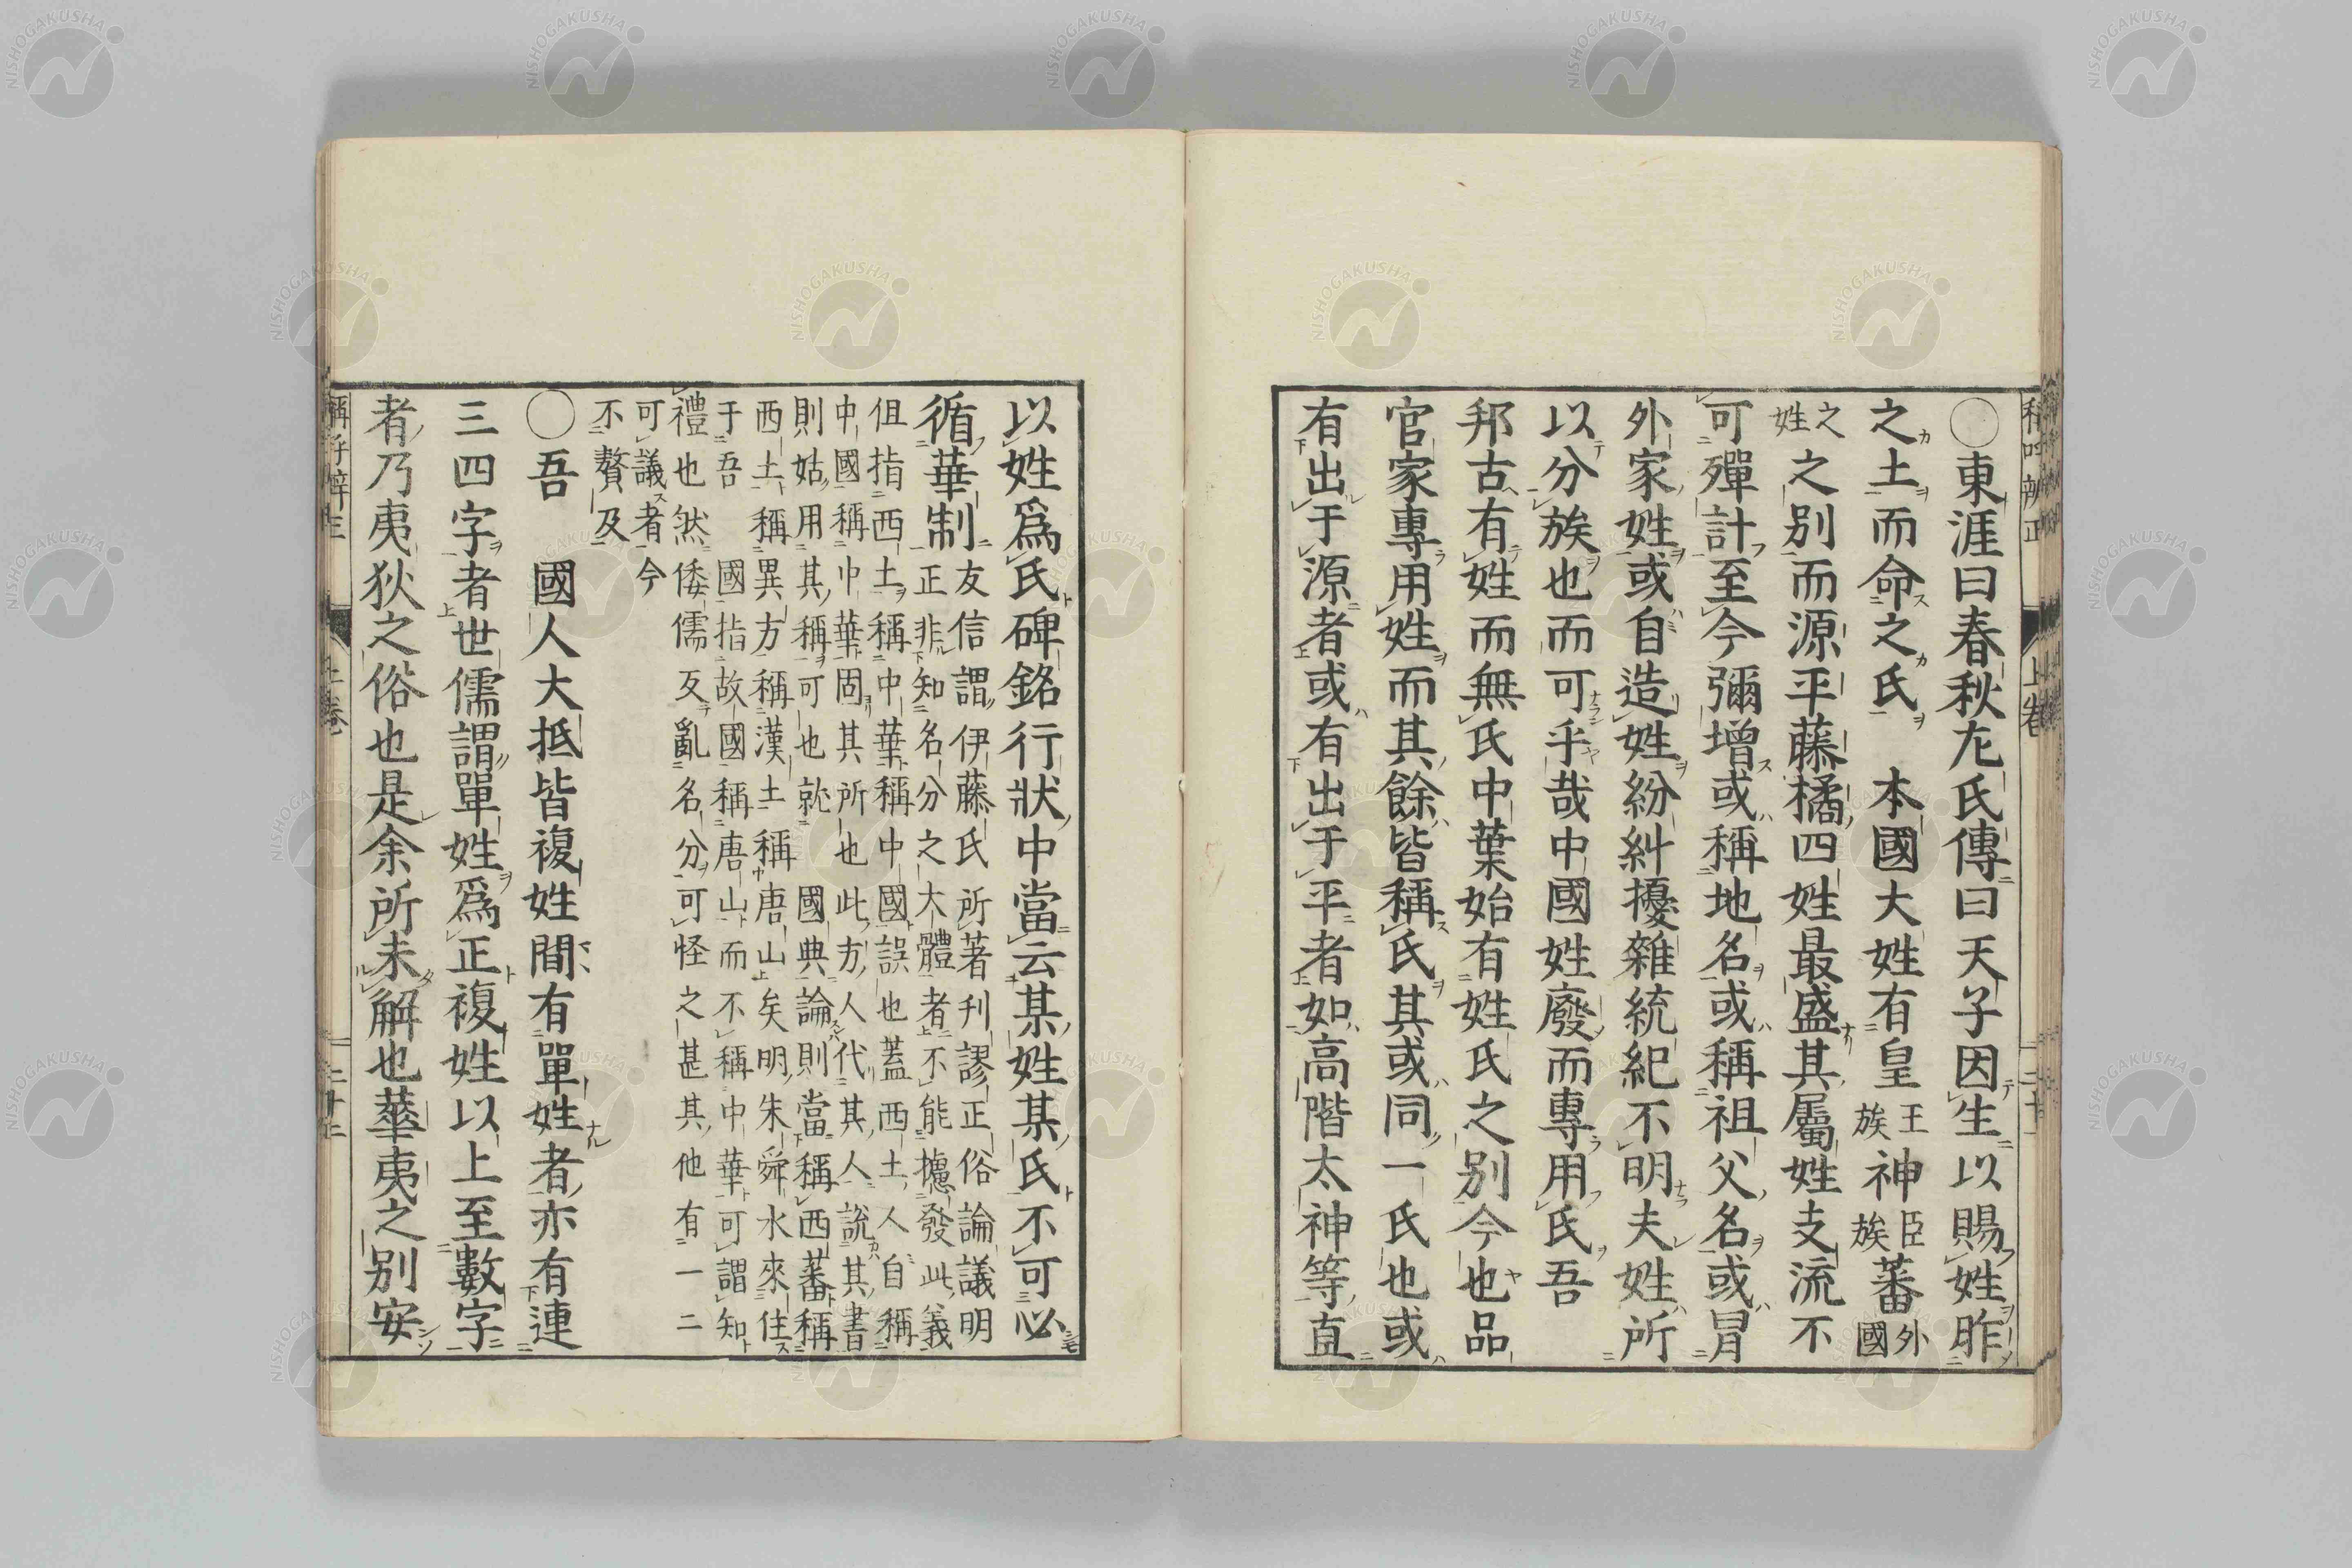 〇東涯曰春秋左氏傳曰天子因生以賜姓胙
之土而命之氏 本國大姓有皇王族神臣族蕃外國
之姓之別而源平藤橘四姓最盛其屬姓支流不
可殫計至今彌增或稱地名或稱祖父名或冐
外家姓或自造姓紛糾擾雜統紀不明夫姓所
以分族也而可乎哉中國姓廢而專用氏吾
邦古有姓而無氏中葉始有姓氏之別今也品
官家專用姓而其餘皆稱氏其或同一氏也或
有出于源者或有出于平者如高階太神等直
以姓爲氏碑銘行狀中當云某姓某氏不可必
循華制
友信謂伊藤氏所著刋謬正俗論議明
正非知名分之大體者不能攄發此義
伹指西土稱中華稱中國誤也蓋西土人自稱
中國稱中華固其所也此方人代其人說其書
則姑用其稱可也就 國典論則當稱西蕃稱
西土稱異方稱漢土稱唐山矣明朱舜水來住
于吾 國指故國稱唐山而不稱中華可謂知
禮也然倭儒反亂名分可怪之甚其他有一二
可議者今
不贅及
〇吾 國人大抵皆複姓間有單姓者亦有連
三四字者世儒謂單姓爲正複姓以上至數字
者乃夷狄之俗也是余所未解也華夷之別安
上卷
NISHOGAKUSHA